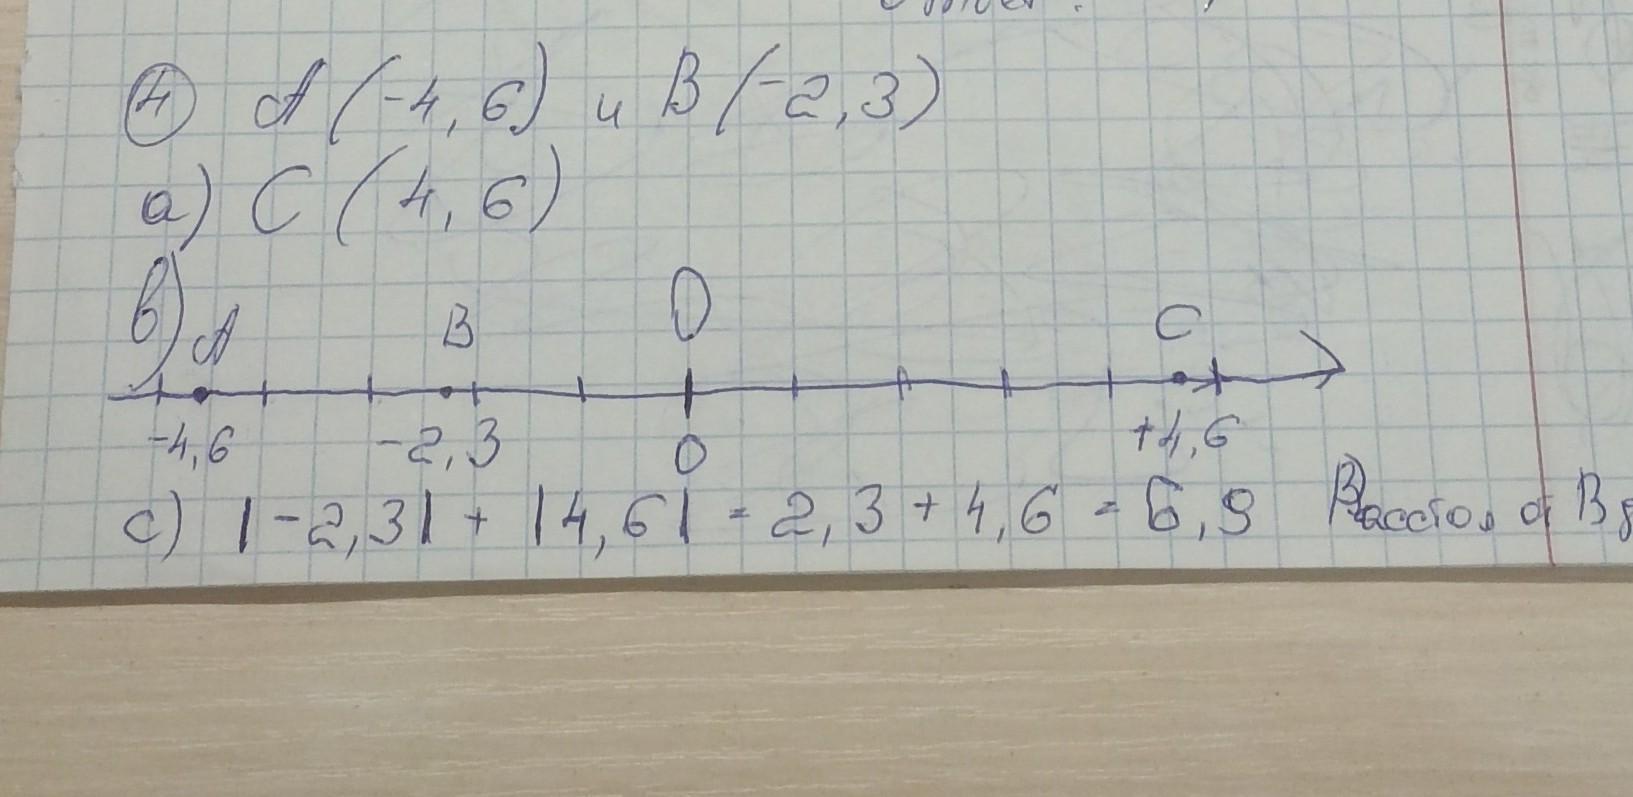 4 A(-4,6) и B(-2,3)
а) C(4,6)
в) A B O C
-4,6 -2,3 0 +4,6
с) |-2,3| + |4,6| = 2,3 + 4,6 = 6,9 Рассто. от B